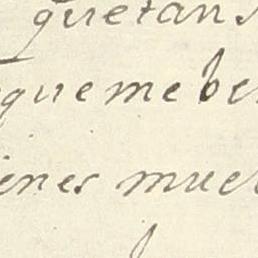 que tan
que me be
ienes mue